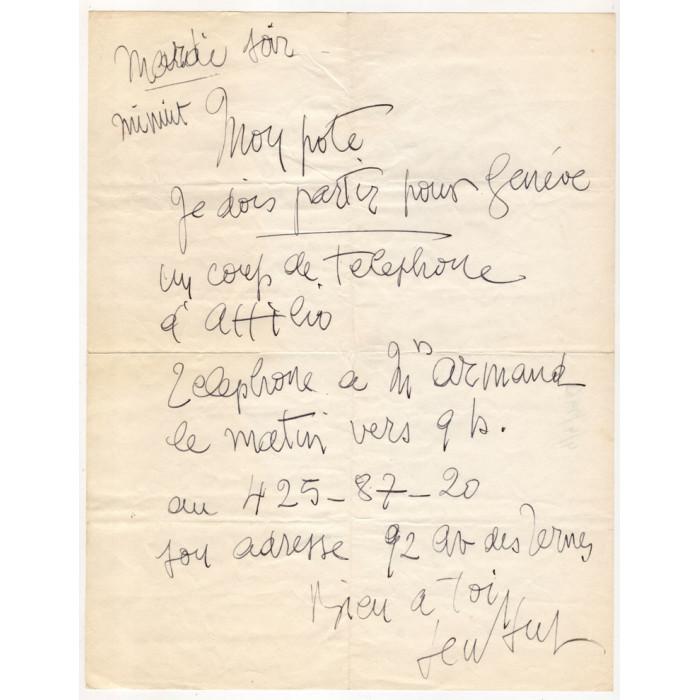 Mardi soir
minuit
Mon pote
Je dois partir pour Genéve
un coup de telephone
d'Attilio
telephone a Mr Armand
le matin vers 9 h.
au 425-87-20
son adresse 92 av des Ternes
Bien a toi